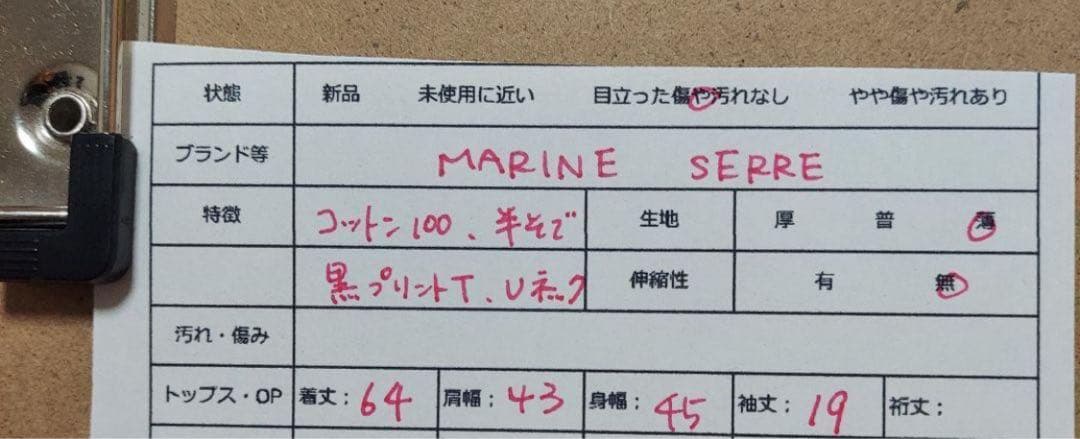 状態 新品 未使用に近い 目立った傷や汚れなし やや傷や汚れあり
ブランド等 MARINE SERRE
特徴 コットン100、半そで 生地 厚 普 薄
黒プリントT、Uネック 伸縮性 有 無
汚れ・傷み
トップス・OP 着丈：64 肩幅：43 身幅：45 袖丈：19 裄丈：